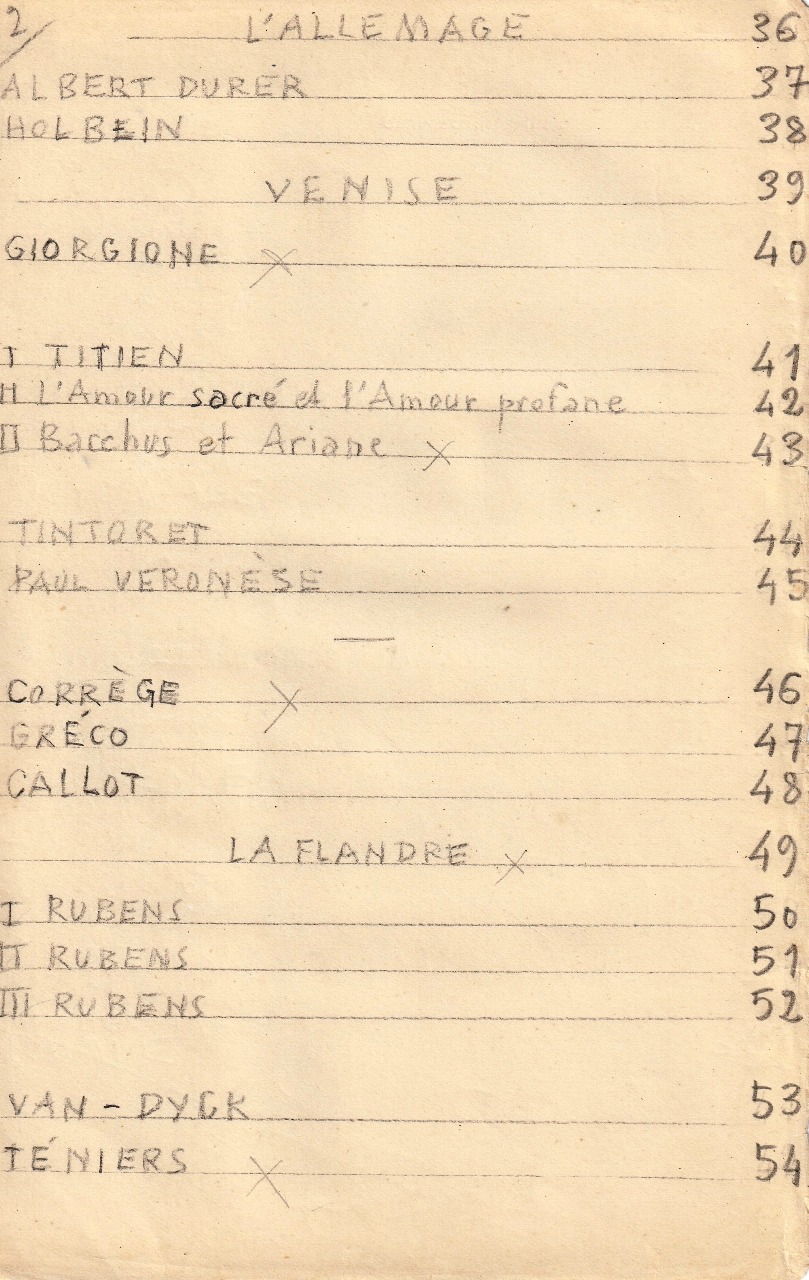 2/ L'ALLEMAGE 36
ALBERT DURER 37
HOLBEIN 38
VENISE 39
GIORGIONE × 40
I TITIEN 41
II L'Amour sacré et l'Amour profane 42
II Bacchus et Ariane × 43
TINTORET 44
PAUL VERONÈSE 45
CORRÈGE × 46
GRÉCO 47
CALLOT 48
LA FLANDRE × 49
I RUBENS 50
II RUBENS 51
III RUBENS 52
VAN-DYCK 53
TÉNIERS × 54